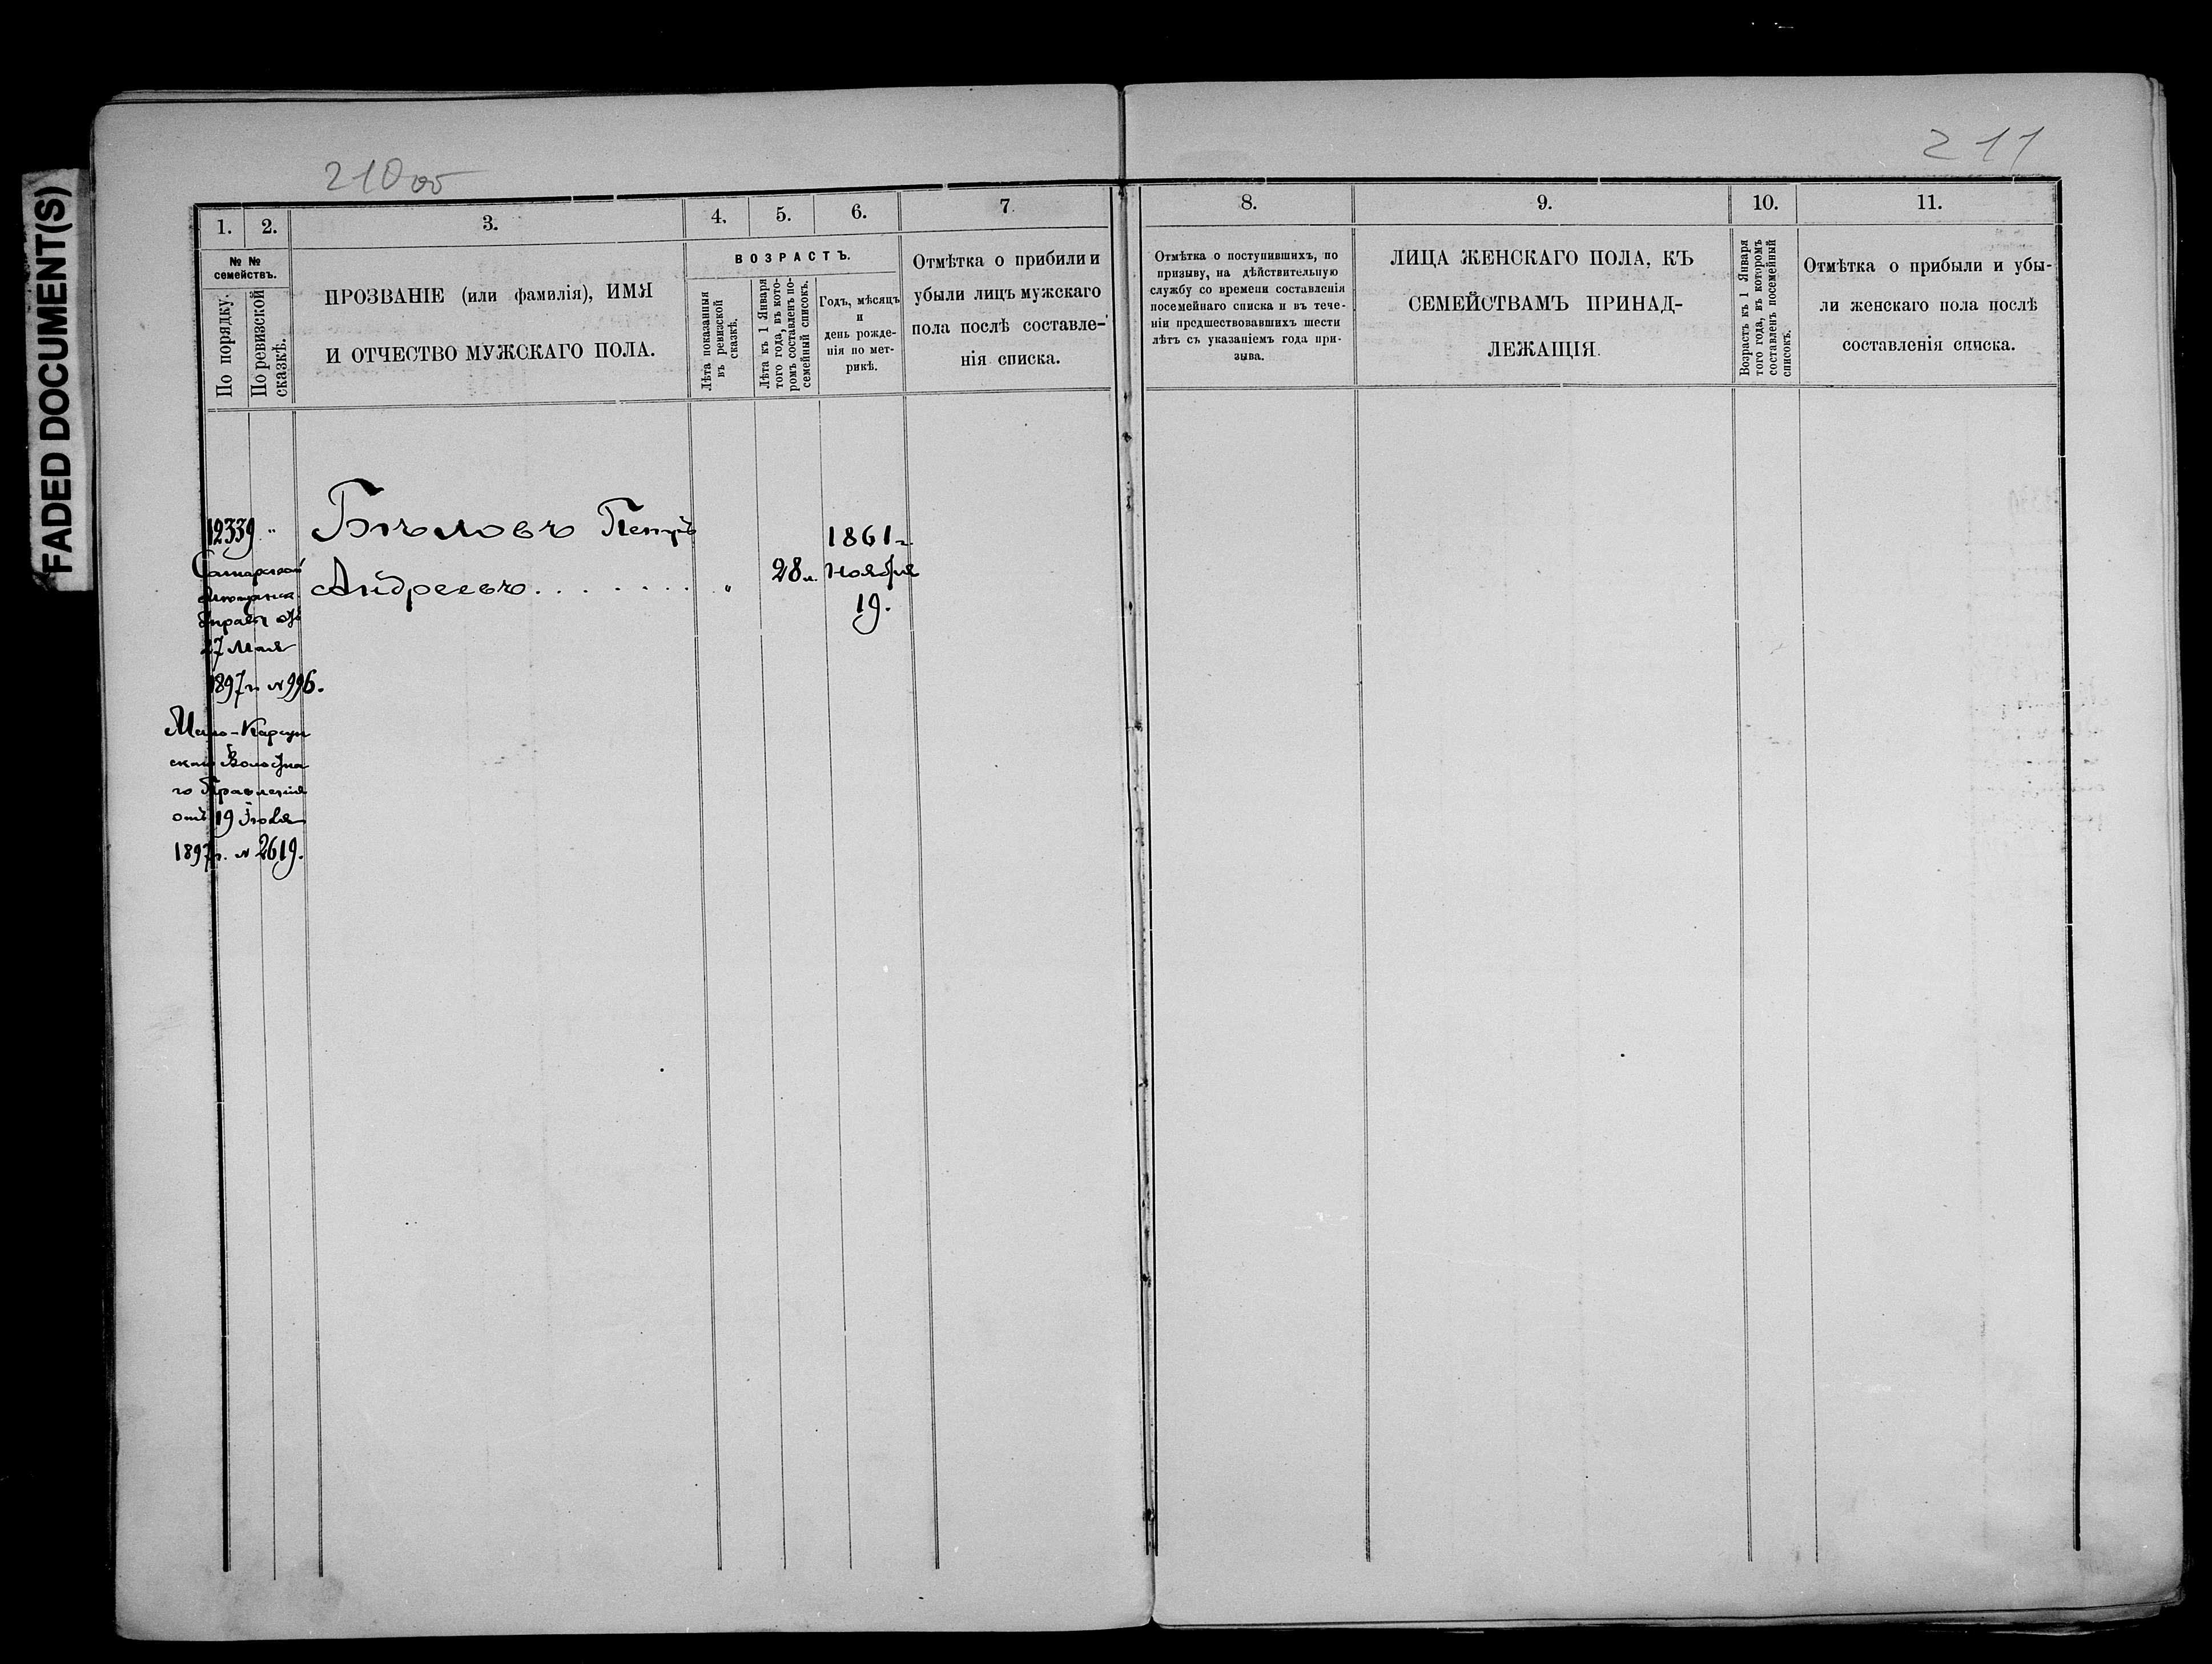 FADED DOCUMENT(S)
210об
211
1.
2.
3.
4.
5.
6.
7.
8.
9.
10.
11.
№ №
семействъ.
По порядку.
По ревизской
сказкѣ.
ПРОЗВАНІЕ (или фамилія), ИМЯ
И ОТЧЕСТВО МУЖСКАГО ПОЛА.
ВОЗРАСТЪ.
Лѣта показанныя
въ ревизской
сказкѣ.
Лѣта къ 1 Января
того года, въ кото-
ромъ составленъ по-
семейный списокъ.
Годъ, мѣсяцъ
и
день рожде-
нія по мет-
рикѣ.
Отмѣтка о прибили и
убыли лицъ мужскаго
пола послѣ составле-
нія списка.
Отмѣтка о поступившихъ, по
призыву, на дѣйствительную
службу со времени составленія
посемейнаго списка и въ тече-
ніи предшествовавшихъ шести
лѣтъ съ указаніемъ года при-
зыва.
ЛИЦА ЖЕНСКАГО ПОЛА, КЪ
СЕМЕЙСТВАМЪ ПРИНАД-
ЛЕЖАЩІЯ.
Возрастъ къ 1 Января
того года, въ которомъ
составленъ посемейный
списокъ.
Отмѣтка о прибыли и убы-
ли женскаго пола послѣ
составленія списка.
12339 "
Бѣловъ Петръ
Андреевъ . . . . . . . . "
28 л.
1861 г.
Ноября
19.
Самарской
Мѣщанск.
Управы отъ
27 Мая
1897 г. № 996.
Мало-Карсун
скаго Волостна
го Правленія
отъ 19 Іюля
1897 г. № 2619.